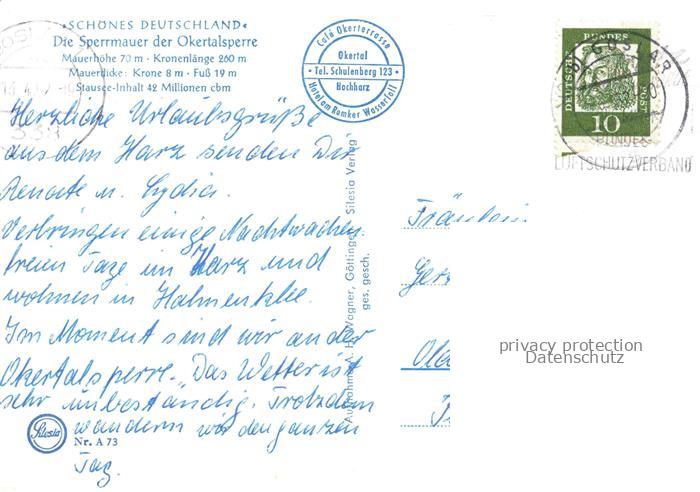 »SCHÖNES DEUTSCHLAND«
Die Sperrmauer der Okertalsperre
Mauerhöhe 70 m · Kronenlänge 260 m
Mauerdicke: Krone 8 m · Fuß 19 m
Stausee-Inhalt 42 Millionen cbm
Café Okerterrasse
Okertal
• Tel. Schulenberg 123 •
Hochharz
Hotel am Romker Wasserfall
DEUTSCHE BUNDESPOST
10
GOSLAR
BUNDES
LUFTSCHUTZVERBAND
Herzliche Urlaubsgrüße
aus dem Harz senden Dir
Renate u. Lydia.
Verbringen einige Nachtwachen
freien Tage im Harz und
wohnen in Hahnenklee.
Im Moment sind wir an der
Okertalsperre. Das Wetter ist
sehr unbeständig. Trotzdem
wandern wir den ganzen
Tag.
Silesia
Nr. A 73
Wagner, Göttingen Silesia Verlag
ges. gesch.
Fräulein
privacy protection
Datenschutz